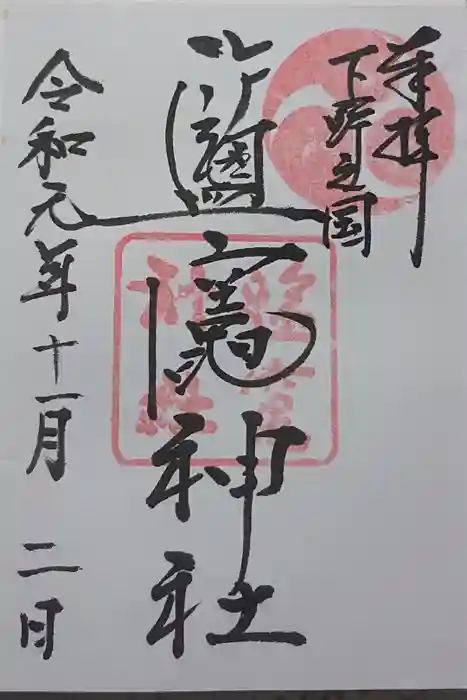 奉拝
下野之国
鹽竈神社
令和元年十一月二日